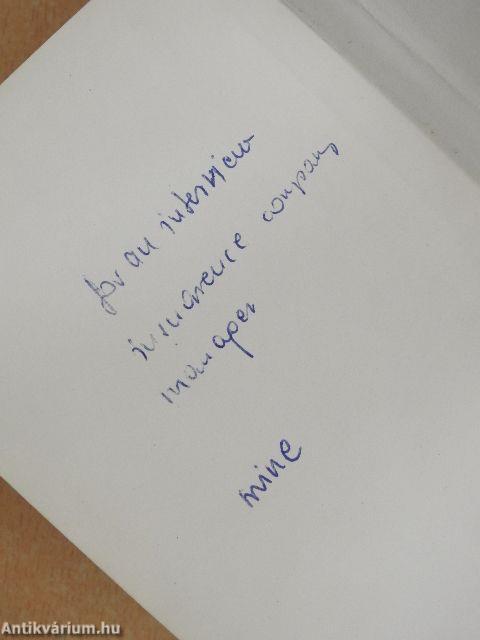 for an interview
insurence company
manager
mine
Antikvárium.hu